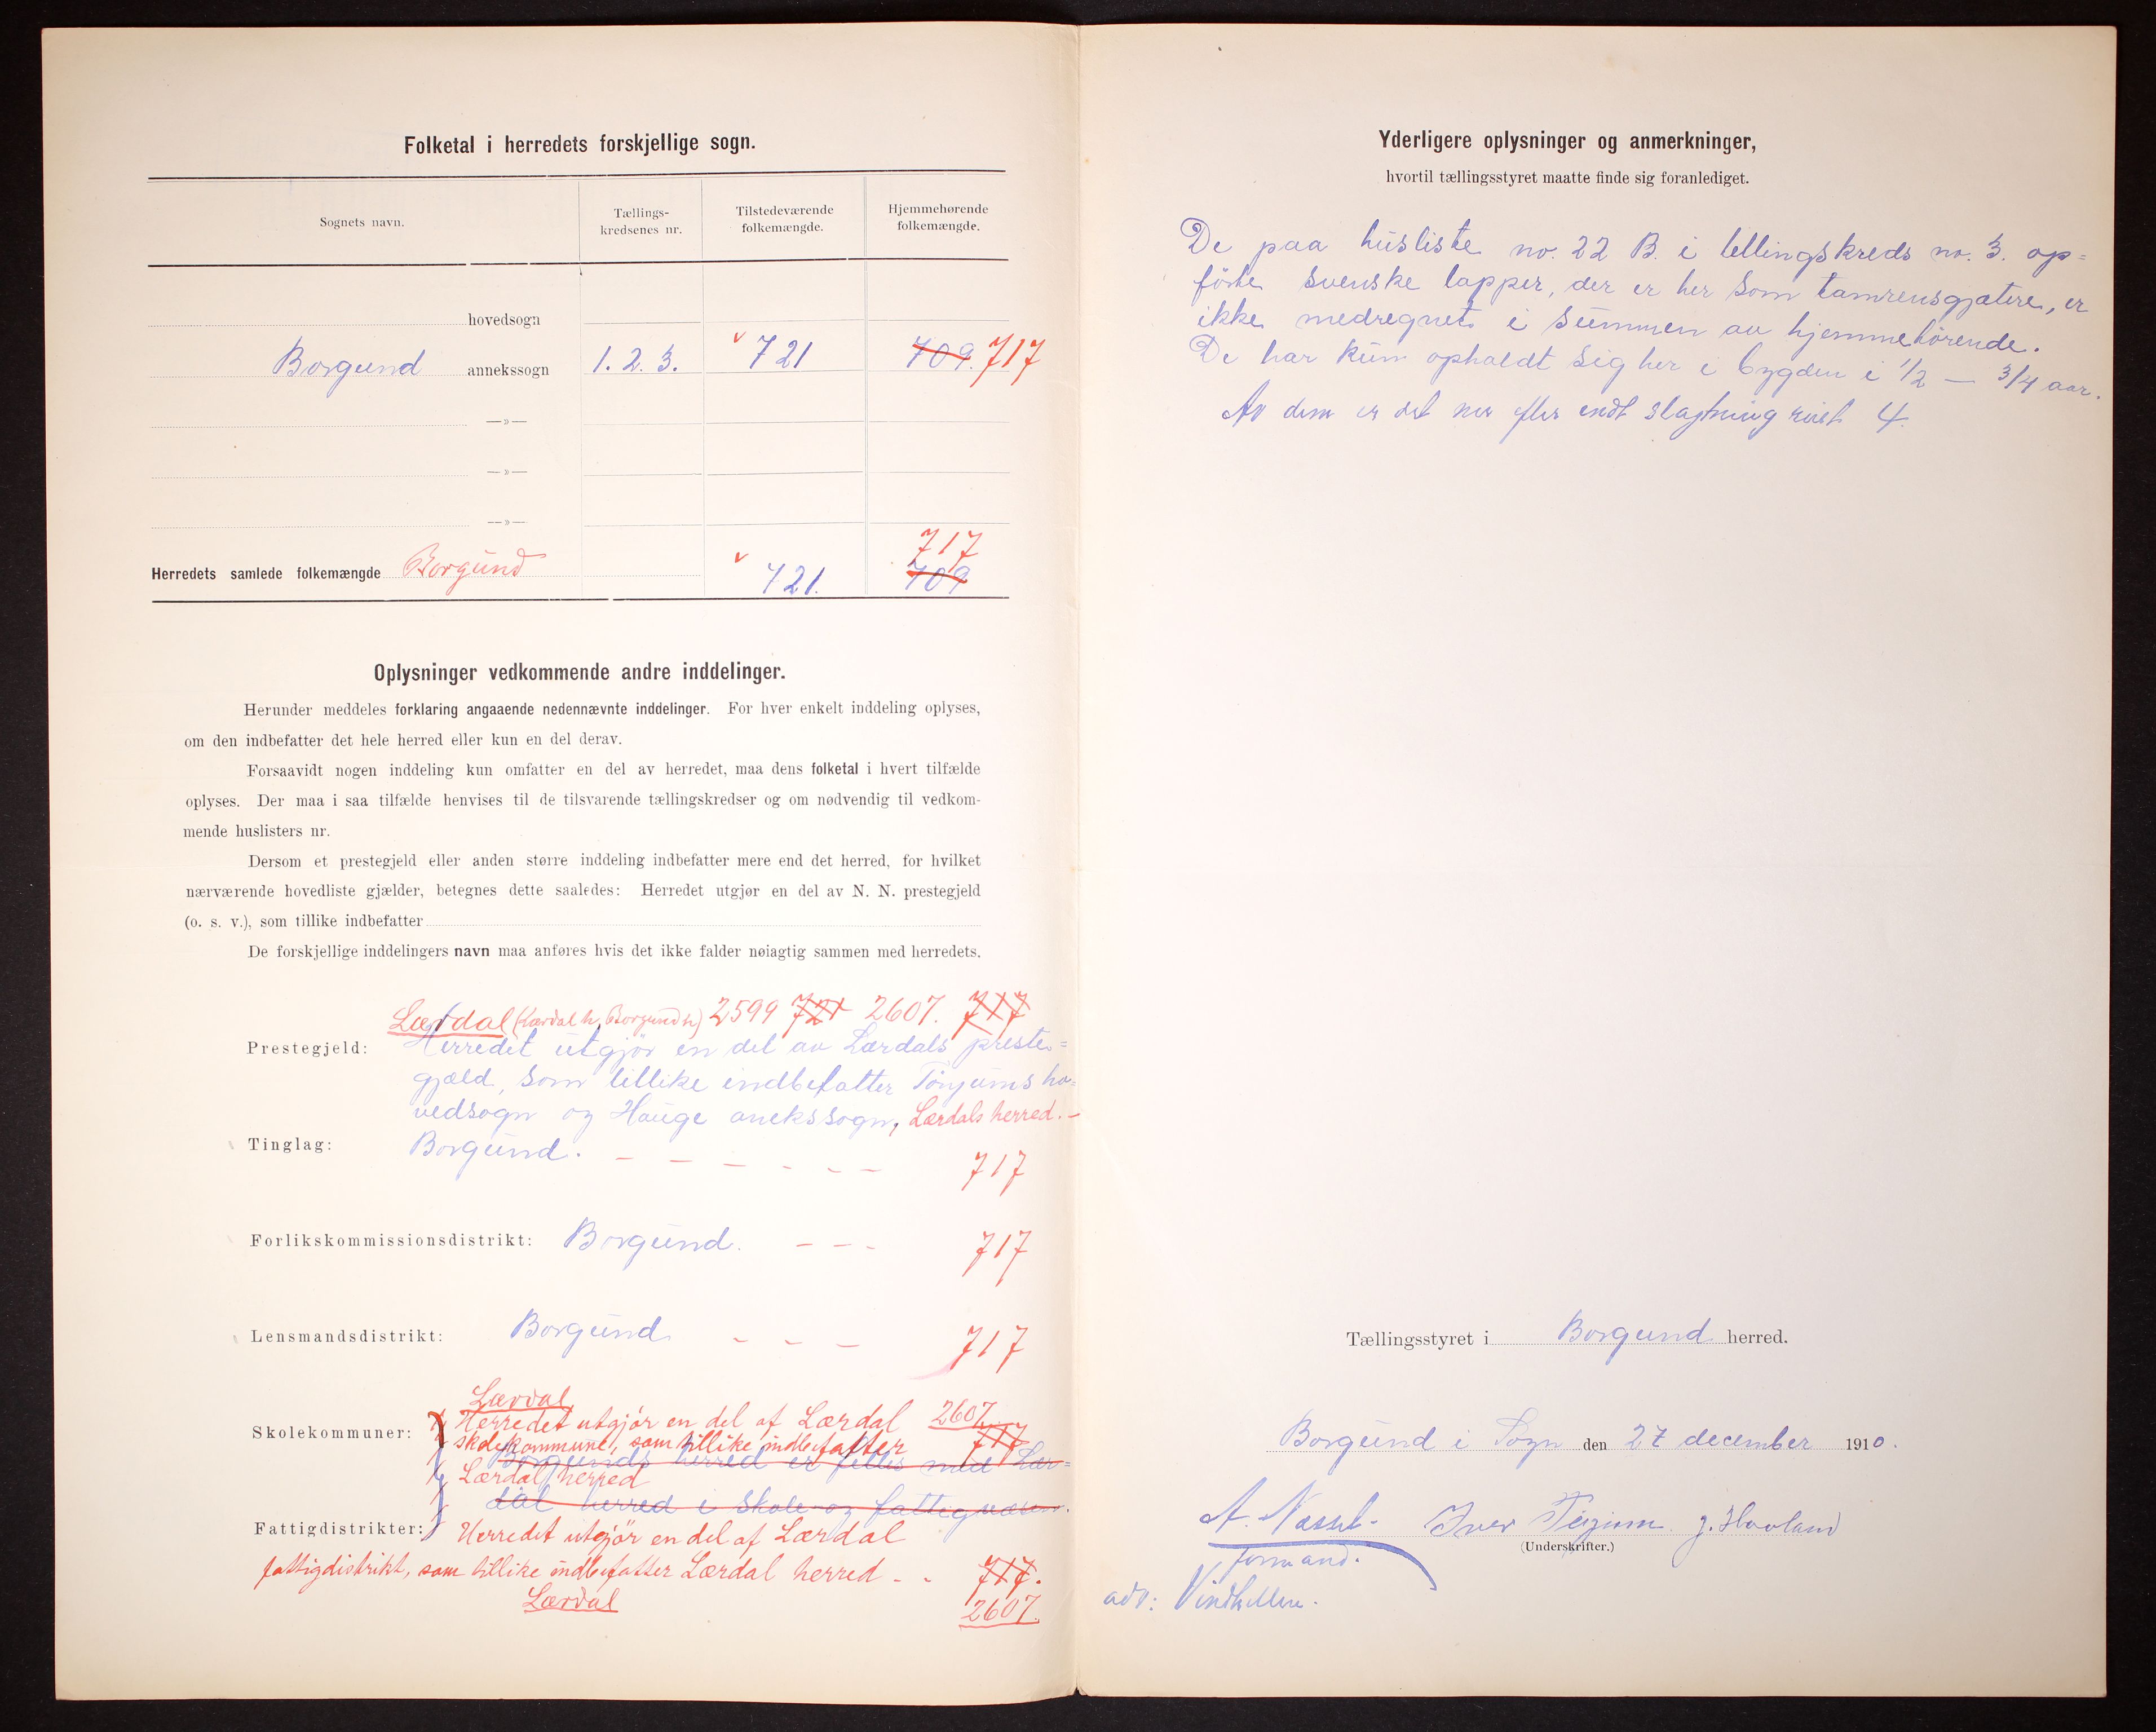 Folketal i herredets forskjellige sogn.
Sognets navn.
Tællings-
kredsenes nr.
Tilstedeværende
folkemængde.
Hjemmehørende
folkemængde.
hovedsogn
Borgund annekssogn 1. 2. 3. 721 709. 717
—»—
—»—
—»—
717
Herredets samlede folkemængde Borgund 721. 709
Oplysninger vedkommende andre inddelinger.
Herunder meddeles forklaring angaaende nedennævnte inddelinger. For hver enkelt inddeling oplyses,
om den indbefatter det hele herred eller kun en del derav.
Forsaavidt nogen inddeling kun omfatter en del av herredet, maa dens folketal i hvert tilfælde
oplyses. Der maa i saa tilfælde henvises til de tilsvarende tællingskredser og om nødvendig til vedkom-
mende huslisters nr.
Dersom et prestegjeld eller anden større inddeling indbefatter mere end det herred, for hvilket
nærværende hovedliste gjælder, betegnes dette saaledes: Herredet utgjør en del av N. N. prestegjeld
(o. s. v.), som tillike indbefatter
De forskjellige inddelingers navn maa anføres hvis det ikke falder nøiagtig sammen med herredets.
Lærdal (Lærdal h, Borgund h) 2599 721 2607. 717
Prestegjeld: Herredet utgjør en del av Lærdals preste=
gjæld, som tillike indbefatter Tønjums ho=
vedsogn og Hauge anekssogn, Lærdals herred. -
Tinglag: Borgund. - - - - - - 717
Forlikskommissionsdistrikt: Borgund. - - - 717
Lensmandsdistrikt: Borgund - - - 717
Lærdal
Skolekommuner: Herredet utgjør en del af Lærdal 2607.
skolekommune, som tillike indbefatter 717
Borgunds herred er fælles med Lær=
Lærdal herred
dal herred i skole og fattigvæsen.
Fattigdistrikter: Herredet utgjør en del af Lærdal
fattigdistrikt, som tillike indbefatter Lærdal herred - - 717.
Lærdal 2607.
Yderligere oplysninger og anmerkninger,
hvortil tællingsstyret maatte finde sig foranlediget.
De paa husliste no. 22 B. i tellingskreds no. 3. op=
førte svenske lapper, der er her som tamrensgjætere, er
ikke medregnet i summen av hjemmehørende.
De har kun opholdt sig her i bygden i 1/2 — 3/4 aar.
Av dem er det nu efter endt slagtning reist 4.
Tællingsstyret i Borgund herred.
Borgund i Sogn den 27 december 1910.
A. Næsset. Iver J. Hovland
(Underskrifter.)
formand.
adr: Vindhellen.